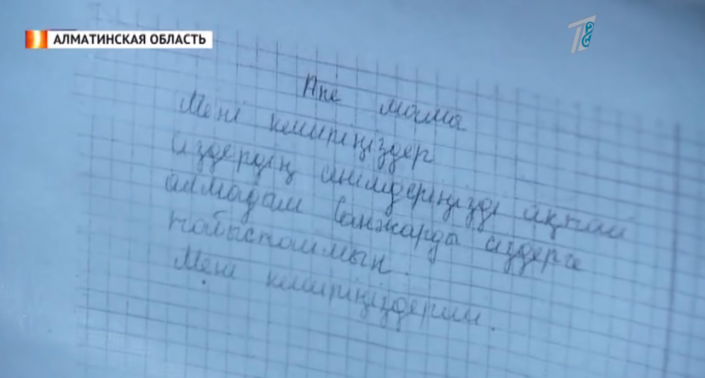 АЛМАТИНСКАЯ ОБЛАСТЬ
Апе мама
Мені кешіріңіздер
сіздердің үміттеріңізді ақтай
алмадам Санжарды сіздерге
табыстаймын.
Мені кешіріңіздерші.